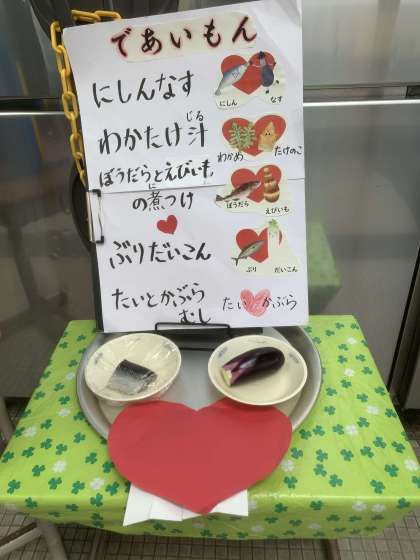 であいもん
にしんなす
にしん なす
じる
わかたけ汁
わかめ たけのこ
ぼうだらとえびいも
に
の煮つけ
ぼうだら えびいも
ぶりだいこん
ぶり だいこん
たいとかぶら
むし
たい かぶら